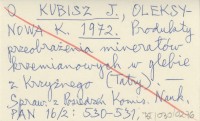 O KUBISZ J., OLEKSY-
NOWA K. 1972. Produkty
przeobrażenia minerałów
krzemianowych w glebie
z Krzyżnego (Tatry). —
Spraw. z Posiedzeń Komis. Nauk.
PAN 16/2: 530-531,